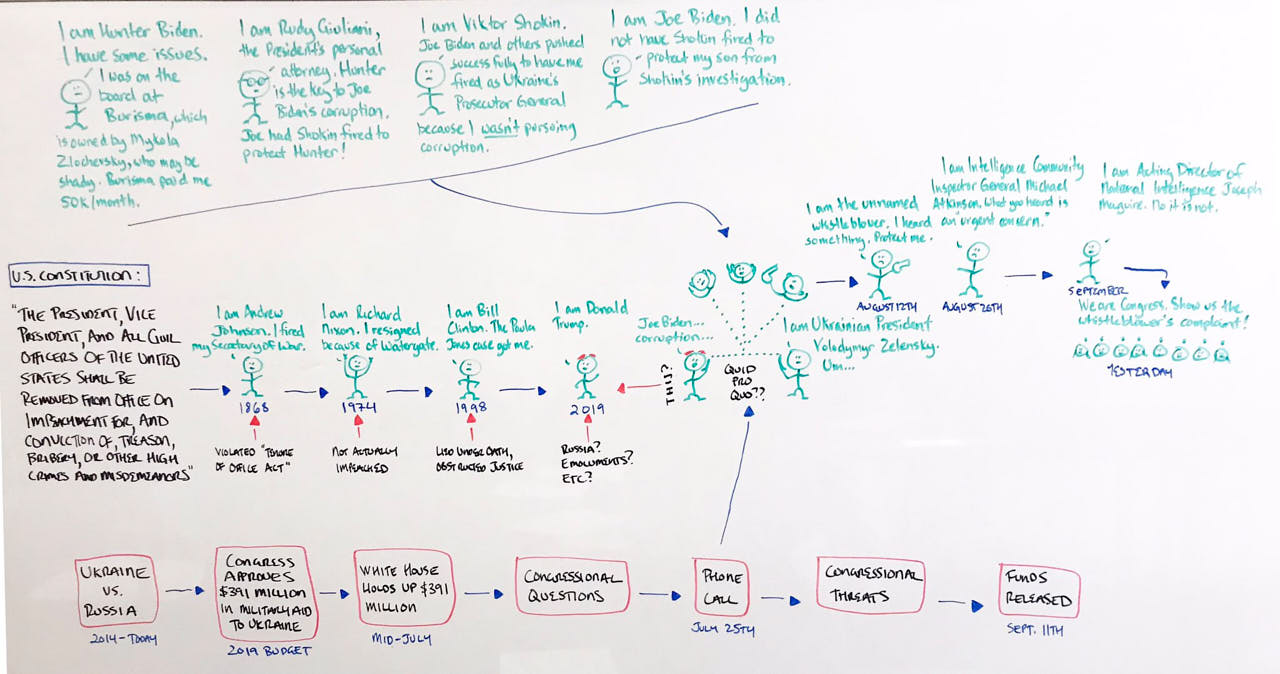 I am Hunter Biden.
I have some issues.
I was on the
board at
Burisma, which
is owned by Mykola
Zlochevsky, who may be
shady. Burisma paid me
50K/month.
I am Rudy Giuliani,
the President's personal
attorney. Hunter
is the key to Joe
Biden's corruption.
Joe had Shokin fired to
protect Hunter!
I am Viktor Shokin.
Joe Biden and others pushed
successfully to have me
fired as Ukraine's
Prosecutor General
because I wasn't pursuing
corruption.
I am Joe Biden. I did
not have Shokin fired to
protect my son from
Shokin's investigation.
U.S. CONSTITUTION:
"THE PRESIDENT, VICE
PRESIDENT, AND ALL CIVIL
OFFICERS OF THE UNITED
STATES SHALL BE
REMOVED FROM OFFICE ON
IMPEACHMENT FOR, AND
CONVICTION OF, TREASON,
BRIBERY, OR OTHER HIGH
CRIMES AND MISDEMEANORS"
I am Andrew
Johnson. I fired
my Secretary of War.
1868
VIOLATED "TENURE
OF OFFICE ACT"
I am Richard
Nixon. I resigned
because of Watergate.
1974
NOT ACTUALLY
IMPEACHED
I am Bill
Clinton. The Paula
Jones case got me.
1998
LIED UNDER OATH,
OBSTRUCTED JUSTICE
I am Donald
Trump.
2019
RUSSIA?
EMOLUMENTS?
ETC?
THIS?
Joe Biden...
corruption...
QUID
PRO
QUO??
I am Ukrainian President
Volodymyr Zelensky.
Um...
I am the unnamed
whistleblower. I heard
something. Protect me.
AUGUST 12TH
I am Intelligence Community
Inspector General Michael
Atkinson. What you heard is
an "urgent concern."
AUGUST 26TH
I am Acting Director of
National Intelligence Joseph
Maguire. No it is not.
SEPTEMBER
We are Congress. Show us the
whistleblower's complaint!
YESTERDAY
UKRAINE
VS.
RUSSIA
2014-TODAY
CONGRESS
APPROVES
$391 MILLION
IN MILITARY AID
TO UKRAINE
2019 BUDGET
WHITE HOUSE
HOLDS UP $391
MILLION
MID-JULY
CONGRESSIONAL
QUESTIONS
PHONE
CALL
JULY 25TH
CONGRESSIONAL
THREATS
FUNDS
RELEASED
SEPT. 11TH